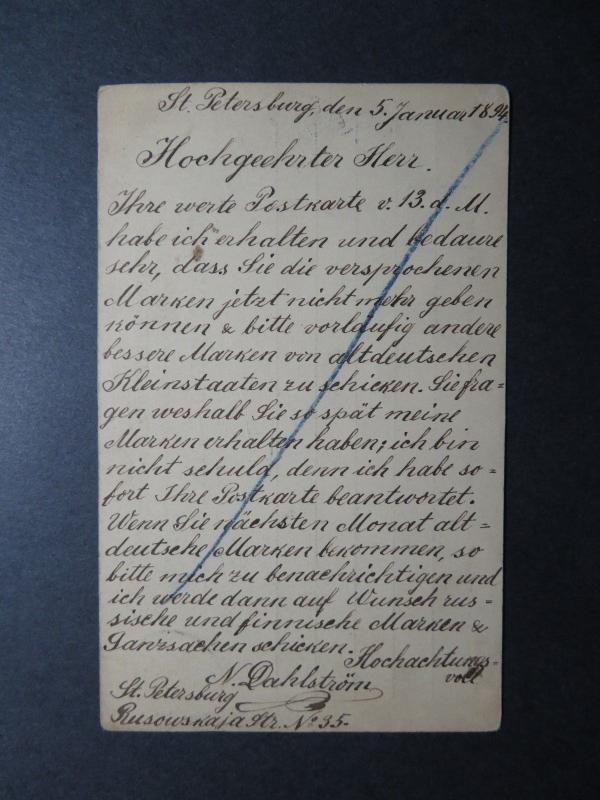 St. Petersburg, den 5. Januar 1894.
Hochgeehrter Herr.
Ihre werte Postkarte v. 13. d. M.
habe ich erhalten und bedaure
sehr, dass Sie die versprochenen
Marken jetzt nicht mehr geben
können & bitte vorläufig andere
bessere Marken von altdeutschen
Kleinstaaten zu schicken. Sie fra=
gen weshalb Sie so spät meine
Marken erhalten haben; ich bin
nicht schuld, denn ich habe so=
fort Ihre Postkarte beantwortet.
Wenn Sie nächsten Monat alt=
deutsche Marken bekommen, so
bitte mich zu benachrichtigen und
ich werde dann auf Wunsch rus=
sische und finnische Marken &
Ganzsachen schicken.
Hochachtungs=
voll
N. Dahlström
St. Petersburg
Rusowskaja Str. No 35.